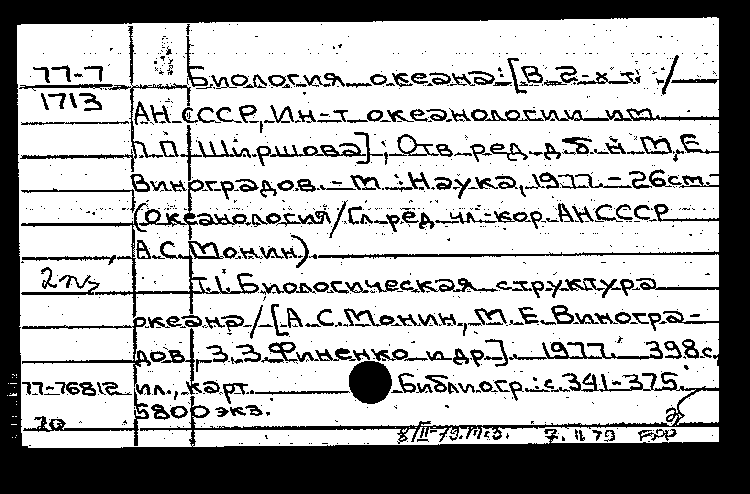 77-7 Биология океана: [В 2-х т. /
1713 АН СССР, Ин-т океанологии им.
П.П. Ширшова]; Отв. ред. д.б.н. М.Е.
Виноградов. - М.: Наука, 1977. - 26см. -
(Океанология/Гл. ред. чл.-кор. АНСССР
А.С. Монин).
Т.1. Биологическая структура
океана/[А.С. Монин, М.Е. Виногра-
дов, З.З. Финенко и др.]. 1977. 398с.
77-76812 ил., карт. Библиогр.: с. 341-375.
5800 экз.
7. II 79